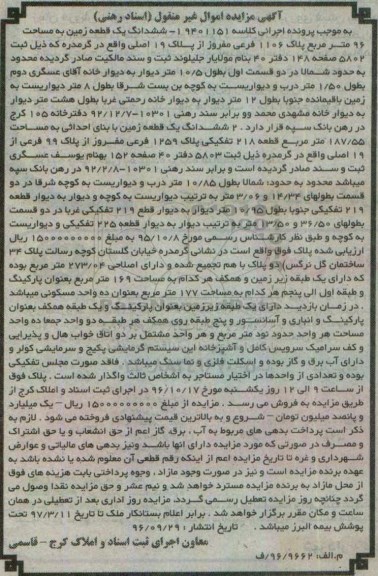 آگهی مزایده اموال غیر منقول (اسناد رهنی)
به موجب پرونده اجرائی کلاسه ۱۹۴۰۱۱۵۱- ششدانگ یک قطعه زمین به مساحت
۹۶ متر مربع پلاک ۱۱۰۶ فرعی مفروز از پلاک ۱۹ اصلی واقع در گرمدره که ذیل ثبت
۵۸۰۲ صفحه ۱۴۸ دفتر ۴۰ بنام مولایار جلیلوند ثبت و سند مالکیت صادر گردیده محدود
به حدود شمالا در دو قسمت اول بطول ۱۰/۵ متر دیوار به دیوار خانه آقای عسگری دوم
بطول ۱/۵۰ متر درب و دیواریست به کوچه بن بست شرقا بطول ۸ متر دیواریست به
زمین باقیمانده جنوبا بطول ۱۲ متر دیوار به دیوار خانه رحمتی غربا بطول هشت متر دیوار
به دیوار خانه مشهدی محمد وو برابر سند رهنی ۱۰۳۰۱-۹۲/۱۲/۷ دفترخانه ۱۰۵ کرج
در رهن بانک سپه قرار دارد . ۲ ششدانگ یک قطعه زمین با بنای احداثی به مساحت
۱۸۷/۵۵ متر مربع قطعه ۲۱۸ تفکیکی پلاک ۱۲۵۹ فرعی مفروز از پلاک ۹۹ فرعی از
۱۹ اصلی واقع در گرمدره ذیل ثبت ۵۸۰۳ دفتر ۴۰ صفحه ۱۵۲ بهنام یوسف عسگری
ثبت و سند صادر گردیده است و برابر سند رهنی ۱۰۳۰۱-۹۲/۲/۸ در رهن بانک سپه
میباشد محدود به حدود: شمالا بطول ۱۰/۸۵ متر درب و دیواریست به کوچه شرقا در دو
قسمت بطولهای ۱۴/۳۴ و ۳/۰۶ متر به ترتیب دیواریست به کوچه و دیوار به دیوار قطعه
۲۱۹ تفکیکی جنوبا بطول ۱۰/۹۵ متر دیوار به دیوار قطع ۲۱۹ تفکیکی غربا در دو قسمت
بطولهای ۳۶/۵۰ و ۱۳/۵۰ متر به ترتیب دیوار به دیوار قطعه ۲۲۵ تفکیکی و دیواریست
به کوچه و طبق نظر کارشناس رسمی مورخ ۹۵/۱۰/۸ به مبلغ ۱۵۰۰۰۰۰۰۰۰۰ ریال
ارزیابی شده پلاک فوق واقع است در نشانی گرمدره خیابان گلستان کوچه رسالت پلاک ۳۴
ساختمان گل نرگس) دو پلاک با هم تجمیع شده و دارای اصلاحی ۲۷۳/۰۴ متر مربع بوده
که دارای یک طبقه زیر زمین و همکف هر کدام به مساحت ۱۶۹ متر مربع بعنوان پارکینگ
و طبقه اول الی پنجم هر کدام به مساحت ۱۷۷ متر مربع بعنوان ده واحد مسکونی میباشد
. در زمان بازدید دارای یک طبقه زیرزمین بعنوان پارکینگ و یک طبقه همکف بعنوان
پارکینگ و انباری و آسانسور و پنج طبقه روی همکف هر طبقه دو واحد جمعا ده واحد
مساحت هر واحد حدود نود متر مربع و هر واحد مشتمل بر دو اتاق خواب هال و پذیرایی
و کف سرامیک سرویس کامل و آشپزخانه این سیستم گرمایشی پکیج و سرمایشی کولر و
دارای آب برق و گاز بوده و اسکلت فلزی و نما سنگ میباشد . فاقد صورت مجلس تفکیکی
بوده و تعدادی از واحدها در اختیار مستاجر به اشخاص ثالث واگذار شده است . پلاک فوق
از ساعت ۹ الی ۱۲ روز یکشنبه مورخ ۹۶/۱۰/۱۷ در اجرای ثبت اسناد و املاک کرج از
طریق مزایده به فروش می رسد . مزایده از مبلغ ۱۵۰۰۰۰۰۰۰۰۰ ریال – یک میلیارد
و پانصد میلیون تومان – شروع و به بالاترین قیمت پیشنهادی فروخته می شود . لازم به
ذکر است پرداخت بدهی های مربوط به آب ، برق، گاز اعم از حق انشعاب و یا حق اشتراک
و مصرف در صورتی که مورد مزایده دارای انها باشد ونیز بدهی های مالیاتی و عوارض
شهرداری و غره تا تاریخ مزایده اعم از اینکه رقم قطعی آن معلوم شده یا نشده باشد به
عهده برنده مزایده است و نیز در صورت وجود مازاد ، وجوه پرداختی بابت هزینه های فوق
از محل مازاد به برنده مزایده مسترد خواهد شد و نیم عشر و حق مزایده نقدا وصول می
گردد چنانچه روز مزایده تعطیل رسمی گردد، مزایده روز اداری بعد از تعطیلی در همان
ساعت و مکان مقرر برگزار خواهد شد . برابر اعلام بستانکار ملک تا تاریخ ۹۷/۳/۱۱ تحت
پوشش بیمه البرز میباشد . تاریخ انتشار : ۹۶/۰۹/۲۹
معاون اجرای ثبت اسناد و املاک کرج – قاسمی
م.الف: ۹۶/۹۶۶۲/ف